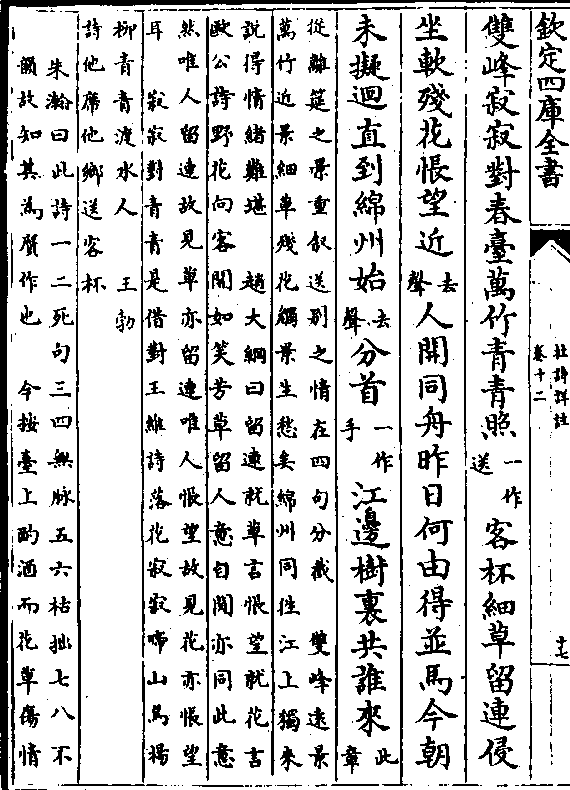 欽定四庫全書
杜詩詳註
卷十二
十七
雙峰寂寂對春臺萬竹青青照一作送客杯細草留連侵
坐軟殘花悵望近去聲人開同舟昨日何由得並馬今朝
未擬迴直到綿州始去聲分首一作手江邊樹裏共誰來此章
從離筵之景重叙送别之情在四句分截　雙峰遠景
萬竹近景細草殘花觸景生愁矣綿州同往江上獨來
説得情緒難堪　趙大綱曰留連就草言悵望就花言
歐公詩野花向客開如笑芳草留人意自閒亦同此意
然唯人留連故見草亦留連唯人悵望故見花亦悵望
耳　寂寂對青青是借對王維詩落花寂寂啼山鳥楊
柳青青渡水人　王勃
詩他席他鄉送客杯
朱瀚曰此詩一二死句三四無脉五六枯拙七八不
韻故知其為贋作也　今按臺上酌酒而花草傷情